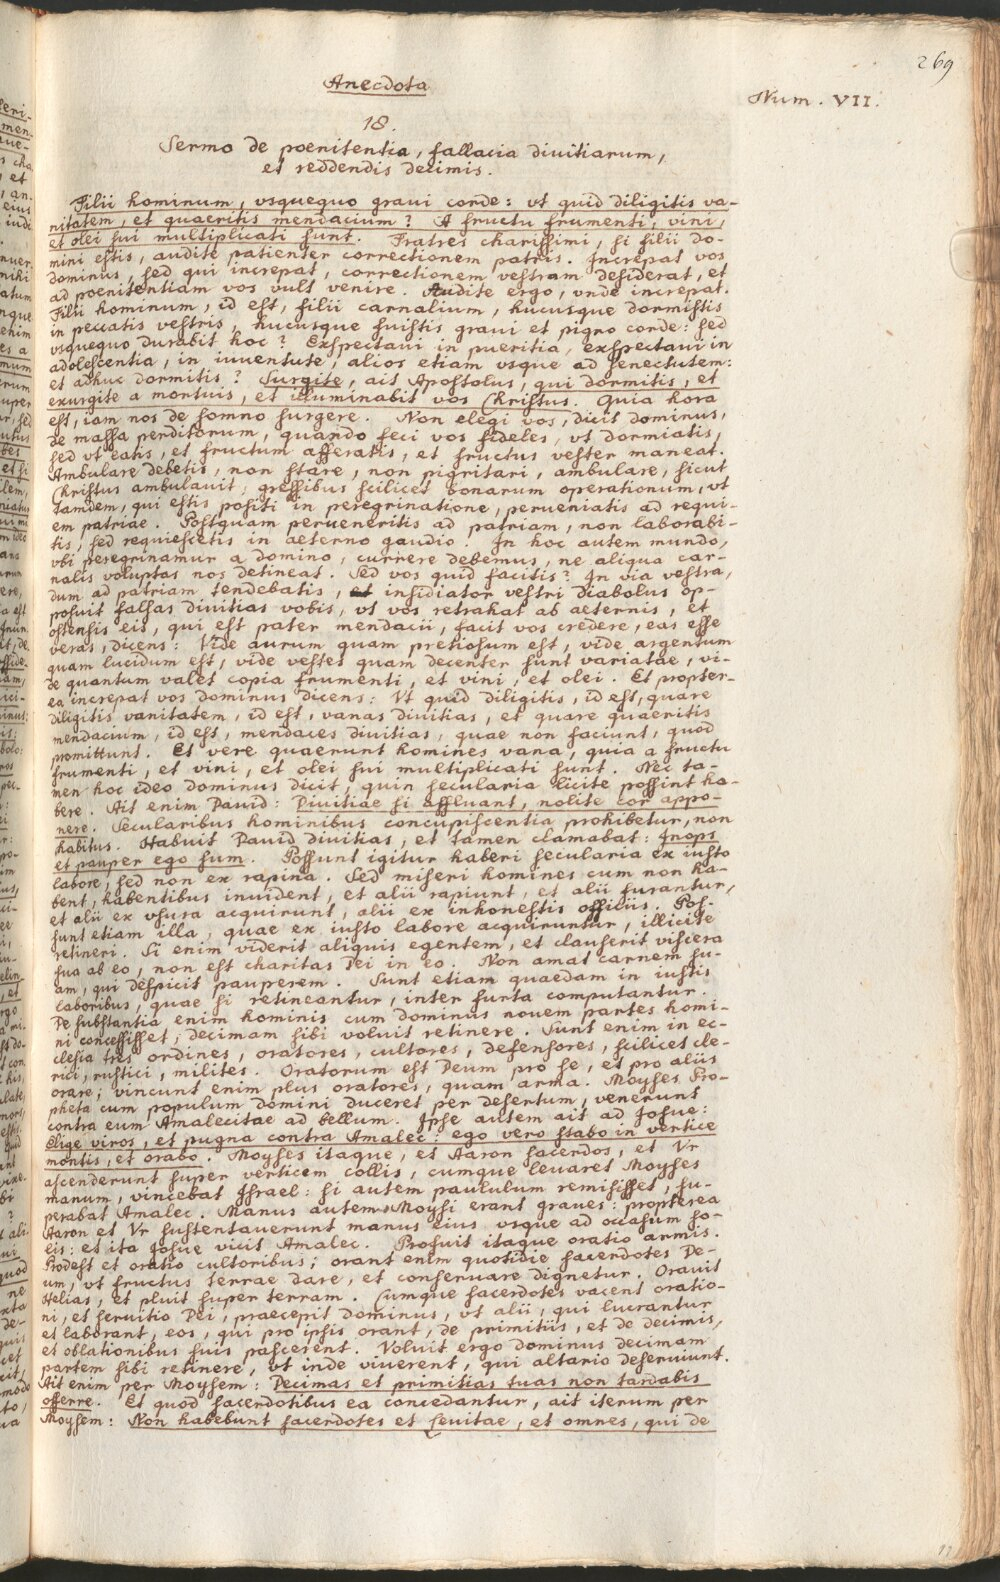 269
Anecdota
Num. VII.
18.
Sermo de poenitentia, fallacia divitiarum,
et reddendis decimis.
Filii hominum, vsquequo graui corde: vt quid diligitis va-
nitatem, et quaeritis mendacium? A fructu frumenti, vini,
et olei sui multiplicati sunt. Fratres charissimi, si filii do-
mini estis, audite patienter correctionem patris. Increpat vos
dominus, sed qui increpat, correctionem vestram desiderat, et
ad poenitentiam vos vult venire. Audite ergo, vnde increpat.
Filii hominum, id est, filii carnalium, hucusque dormistis
in peccatis vestris, hucusque fuistis graui et pigro corde: sed
vsquequo durabit hoc? Exspectaui in pueritia, exspectaui in
adolescentia, in iuuentute, alios etiam vsque ad senectutem:
et adhuc dormitis? Surgite, ait Apostolus, qui dormitis, et
exurgite a mortuis, et illuminabit vos Christus. Quia hora
est, iam nos de somno surgere. Non elegi vos, dicit dominus,
de massa perditorum, quando feci vos fideles, vt dormiatis,
sed vt eatis, et fructum afferatis, et fructus vester maneat.
Ambulare debetis, non stare, non pigritari, ambulare, sicut
Christus ambulauit, gressibus scilicet bonarum operationum, vt
tamdem, qui estis positi in peregrinatione, perueniatis ad requi-
em patriae. Postquam perueneritis ad patriam, non laborabi-
tis, sed requiescetis in aeterno gaudio. In hoc autem mundo,
vbi peregrinamur a domino, currere debemus, ne aliqua car-
nalis voluptas nos detineat. Sed vos quid facitis? In via vestra,
dum ad patriam tendebatis, et insidiator vestri diabolus op-
posuit falsas diuitias vobis, vt vos retrahat ab aeternis, et
ostensis eis, qui est pater mendacii, facit vos credere, eas esse
veras, dicens: Vide aurum quam pretiosum est, vide argentum
quam lucidum est, vide vestes quam decenter sunt variatae, vi-
de quantum valet copia frumenti, et vini, et olei. Et propter-
ea increpat vos dominus dicens: Vt quid diligitis, id est, quare
diligitis vanitatem, id est, vanas diuitias, et quare quaeritis
mendacium, id est, mendaces diuitias, quae non faciunt, quod
promittunt. Et vere quaerunt homines vana, quia a fructu
frumenti, et vini, et olei sui multiplicati sunt. Nec ta-
men hoc ideo dominus dicit, quin secularia licite possint ha-
bere. Ait enim Dauid: Diuitiae si affluant, nolite cor appo-
nere. Secularibus hominibus concupiscentia prohibetur, non
habitus. Habuit Dauid diuitias, et tamen clamabat: Inops
et pauper ego sum. Possunt igitur haberi secularia ex iusto
labore, sed non ex rapina. Sed miseri homines cum non ha-
bent, habentibus inuident, et alii rapiunt, et alii furantur,
et alii ex vsura acquirunt, alii ex inhonestis officiis. Pos-
sunt etiam illa, quae ex iusto labore acquiruntur, illicite
retineri. Si enim viderit aliquis egentem, et clauserit viscera
sua ab eo, non est charitas Dei in eo. Non amat carnem su-
am, qui despicit pauperem. Sunt etiam quaedam in iustis
laboribus, quae si retineantur, inter furta computantur.
De substantia enim hominis cum dominus nouem partes homi-
ni concessisset, decimam sibi voluit retinere. Sunt enim in ec-
clesia tres ordines, oratores, cultores, defensores, scilicet cle-
rici, rustici, milites. Oratorum est Deum pro se, et pro aliis
orare; vincunt enim plus oratores, quam arma. Moyses Pro-
pheta cum populum domini duceret per desertum, venerunt
contra eum Amalecitae ad bellum. Ipse autem ait ad Josue:
Elige viros, et pugna contra Amalec: ego vero stabo in vertice
montis, et orabo. Moyses itaque, et Aaron sacerdos, et Vr
ascenderunt super verticem collis, cumque leuaret Moyses
manum, vincebat Israel: si autem paululum remisisset, su-
perabat Amalec. Manus autem Moysi erant graues: propterea
Aaron et Vr sustentauerunt manus eius vsque ad occasum so-
lis: et ita Josue vicit Amalec. Profuit itaque oratio armis.
Prodest et oratio cultoribus; orant enim quotidie sacerdotes De-
um, vt fructus terrae dare, et conseruare dignetur. Orauit
Helias, et pluit super terram. Cumque sacerdotes vacent oratio-
ni, et seruitio Dei, praecepit dominus, vt alii, qui lucrantur
et laborant, eos, qui pro ipsis orant, de primitiis, et de decimis,
et oblationibus suis pascerent. Voluit ergo dominus decimam
partem sibi retinere, vt inde viuerent, qui altario deseruiunt.
Ait enim per Moysem: Decimas et primitias tuas non tardabis
offerre. Et quod sacerdotibus ea concedantur, ait iterum per
Moysem: Non habebunt sacerdotes et Leuitae, et omnes, qui de